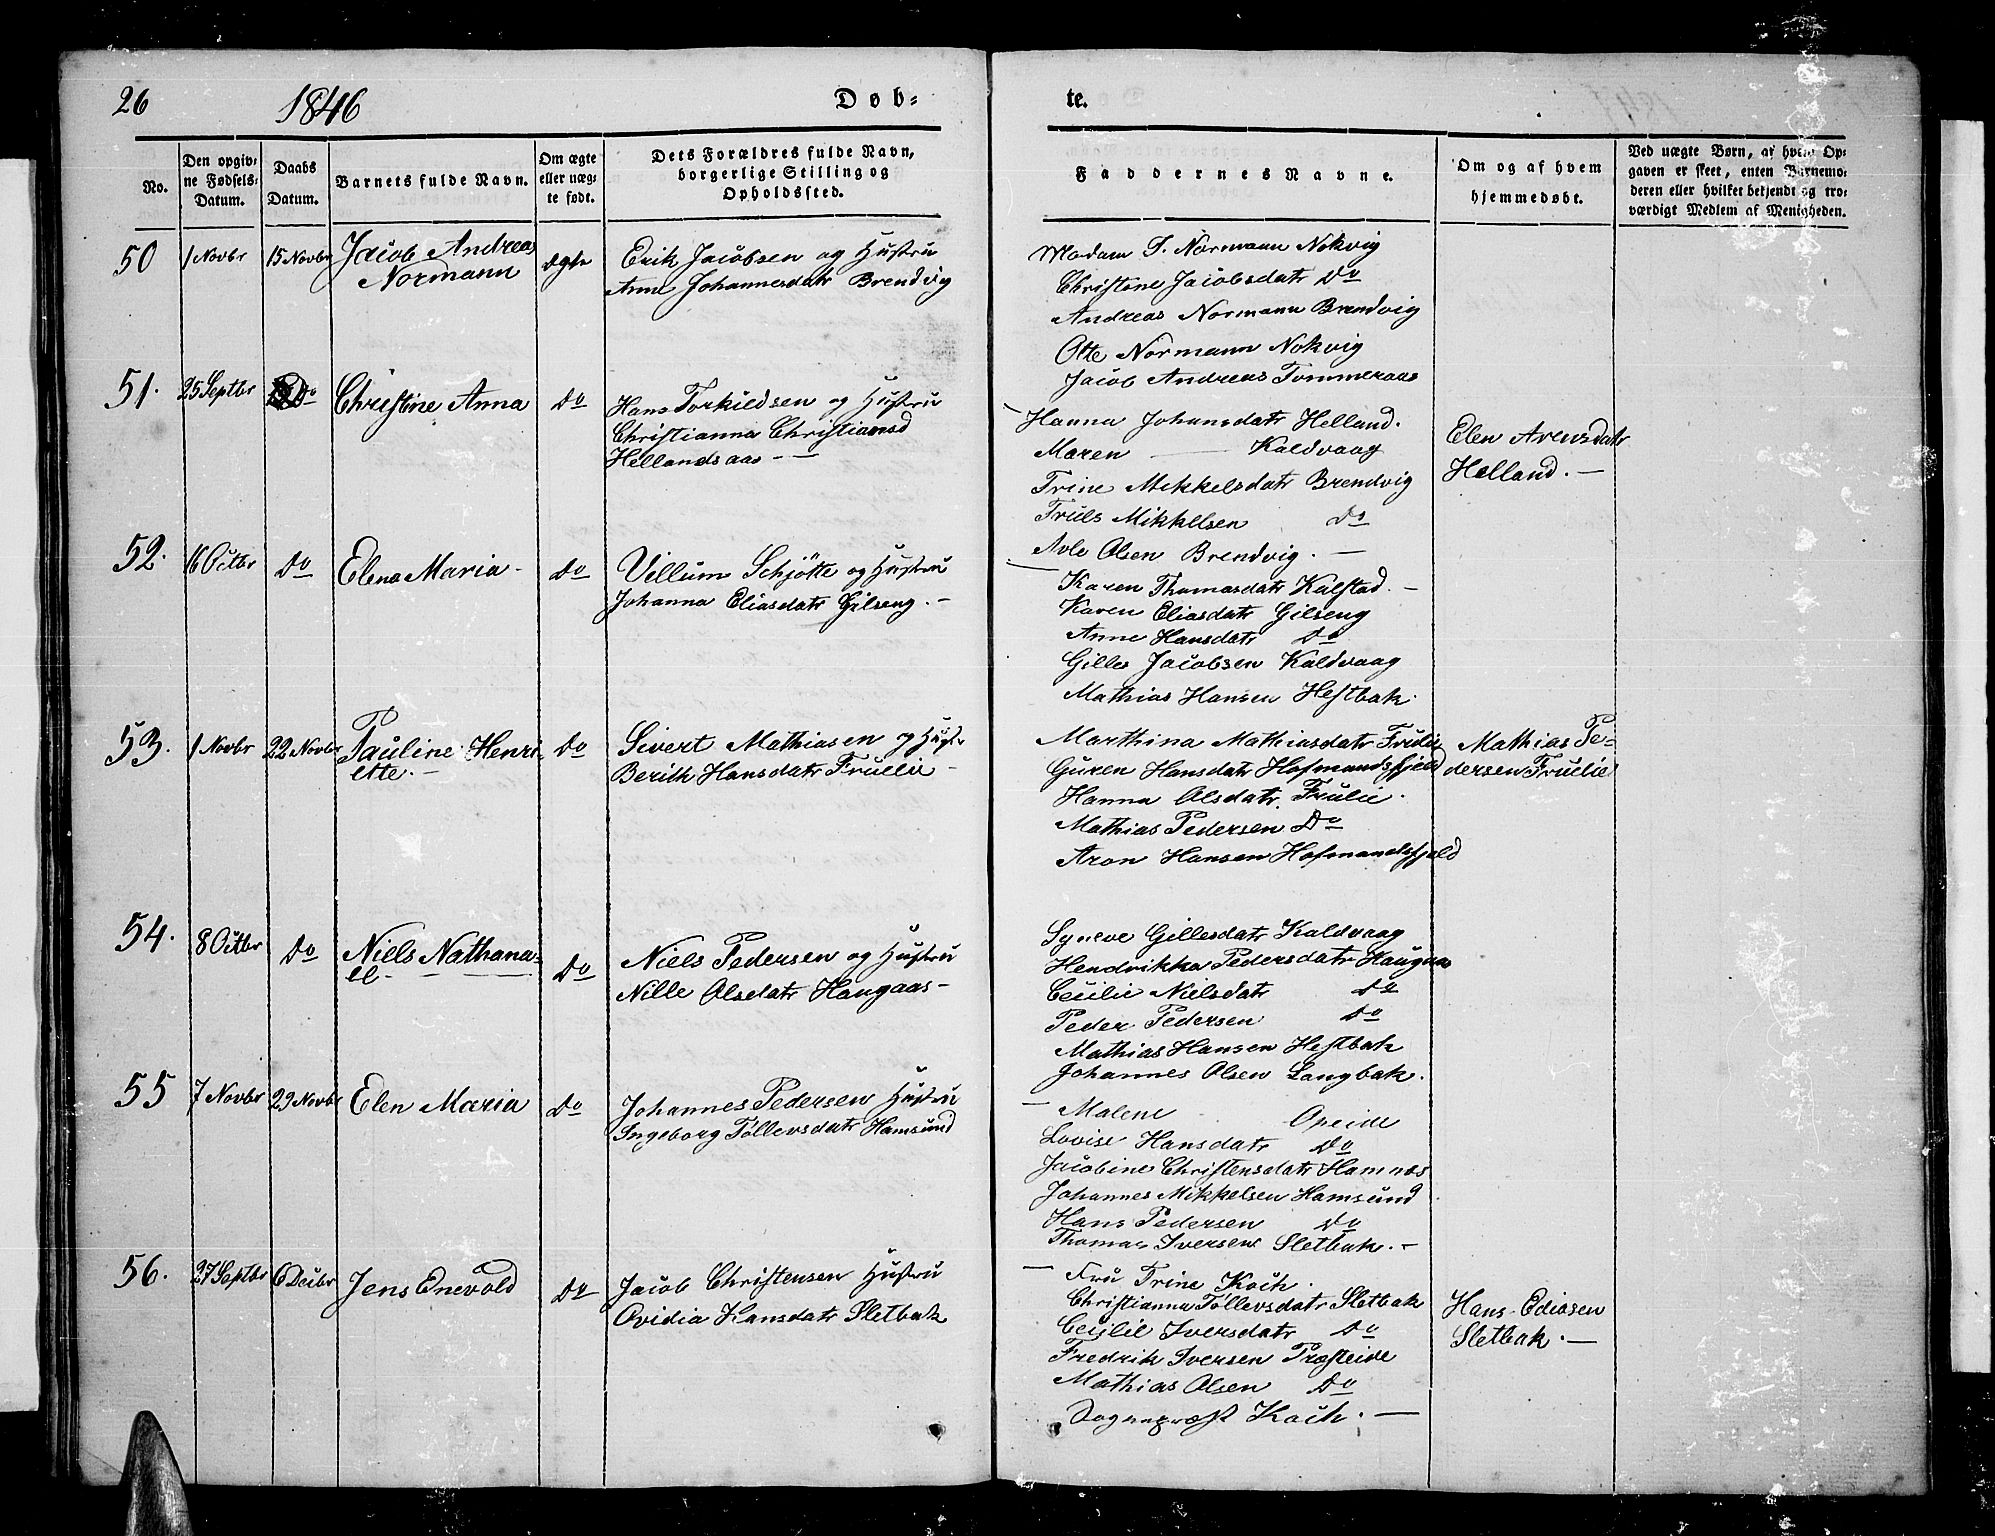 26 1846 Døb-
te.
No.
Den opgiv-
ne Fødsels-
Datum.
Daabs
Datum.
Barnets fulde Navn.
Om ægte
eller uæg-
te født.
Dets Forældres fulde Navn,
borgerlige Stilling og
Opholdssted.
Faddernes Navne.
Om og af hvem
hjemmedøbt.
Ved uægte Børn, af hvem Op-
gaven er skeet, enten Barnemo-
deren eller hvilket bekjendt og tro-
værdigt Medlem af Menigheden.
50 1 Novbr 15 Novbr Jacob Andreas
Normann
ægte
Erik Jacobsen og Hustru
Anne Johannesdatr Brendvig
Madam S. Normann Nokvig
Christine Jacobsdatr Do
Andreas Normann Brendvig
Otte Normann Nokvig
Jacob Andreas Tømmeraas
51. 25 Septbr Do Christine Anna Do
Hans Torkildsen og Hustru
Christianna Christiansd
Hellandsaas - —
Hanna Johansdatr Helland.
Maren — Kaldvaag
Trine Mikkelsdatr Brendvig
Truls Mikkelsen Do
Avle Olsen Brendvig. —
Elen Arensdatr
Helland. —
52. 16 Octbr Do Elena Maria - Do
Villum Schjøtte og Hustru
Johanna Eliasdatr Gilseng. -
Karen Thomasdatr Kalstad. -
Karen Eliasdatr Gilseng
Anne Hansdatr Do
Gilles Jacobsen Kaldvaag
Mathias Hansen Hestbak.
53. 1 Novbr 22 Novbr Pauline Henri-
ette. -
Do
Sivert Mathiasen og Hustr
Berith Hansdatr Fruelie -
Marthina Mathiasdatr Frulie
Guren Hansdatr Hofmandsfjeld
Hanna Olsdatr. Frulie.
Mathias Pedersen Do
Aron Hansen Hofmandsfjeld
Mathias Pe-
dersen Fruelie
54. 8 Octbr Do Niels Nathana-
el -
Do
Niels Pedersen og Hustru
Nille Olsdatr Haugaas -
Syneve Gillesdatr Kaldvaag
Hendrikka Pedersdatr Haugaas
Cecilie Nielsdatr Do
Peder Pedersen Do
Mathias Hansen Hestbak
Johannes Olsen Langbak.
55 7 Novbr 29 Novbr Elen Maria Do
Johannes Pedersen Hustru
Ingeborg Tøllevsdatr Hamsund
— Malene Opeide
Lovise Hansdatr Do
Jacobine Christensdatr Hamnes
Johannes Mikkelsen Hamsund
Hans Pedersen Do
Thomas Iversen Sletbak. -
56. 27 Septbr 6 Decbr Jens Enevold Do
Jacob Christensen Hustru
Ovidia Hansdatr Sletbak
— Fru Trine Koch.
Christianna Tøllevsdatr Sletbak
Cecilie Iversdatr Do
Fredrik Iversen Præsteide
Mathias Olsen Do
Sognepræst Koch. —
Hans Ediasen
Sletbak. —